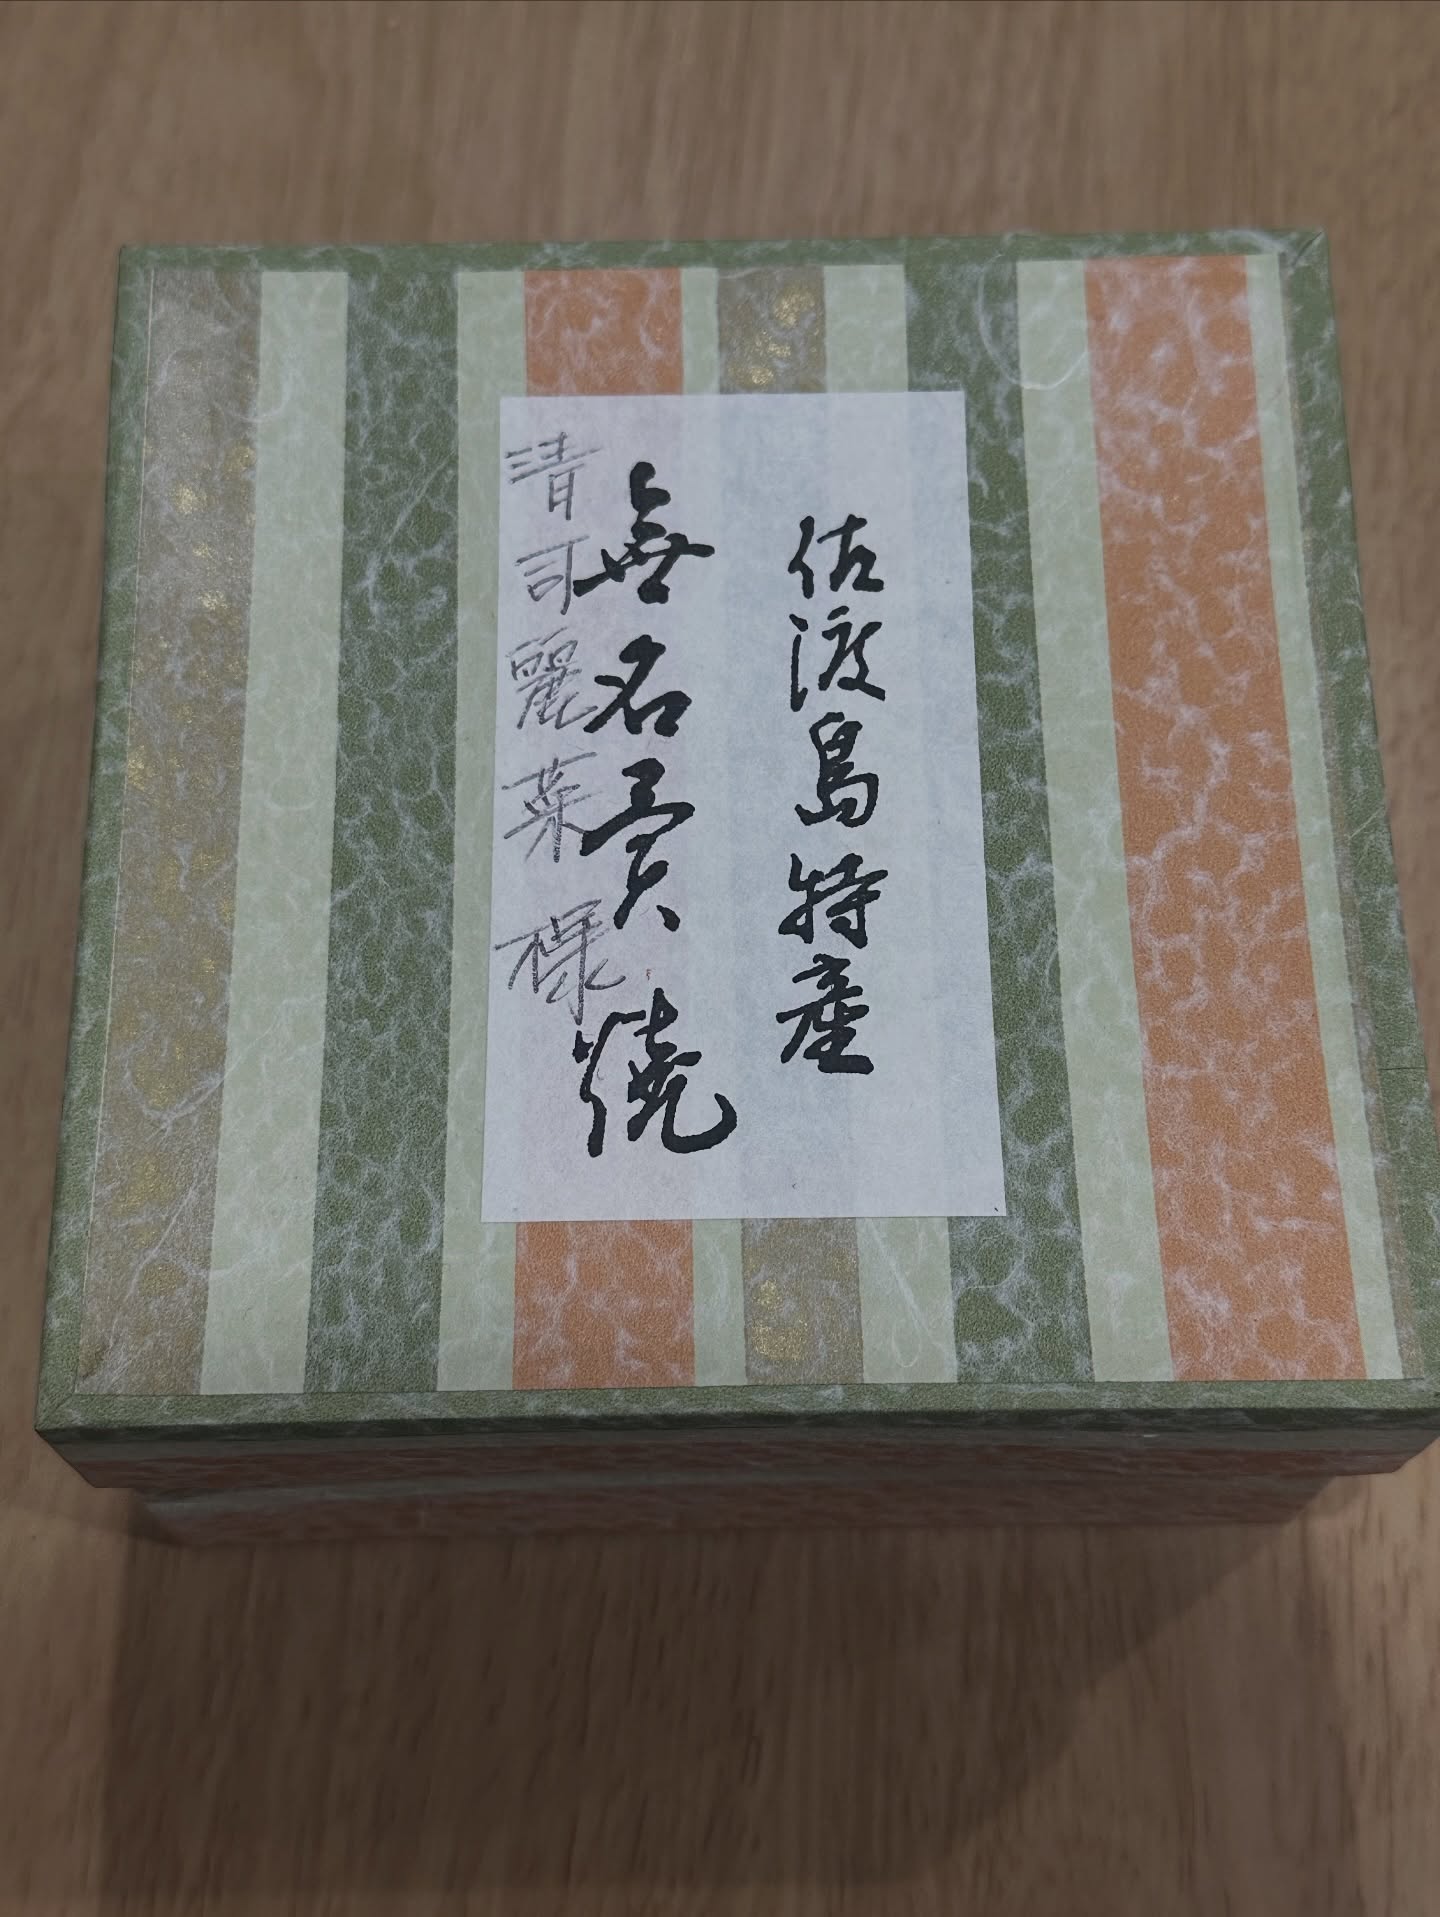 佐渡島特産
無名異燒
清司麗菜様